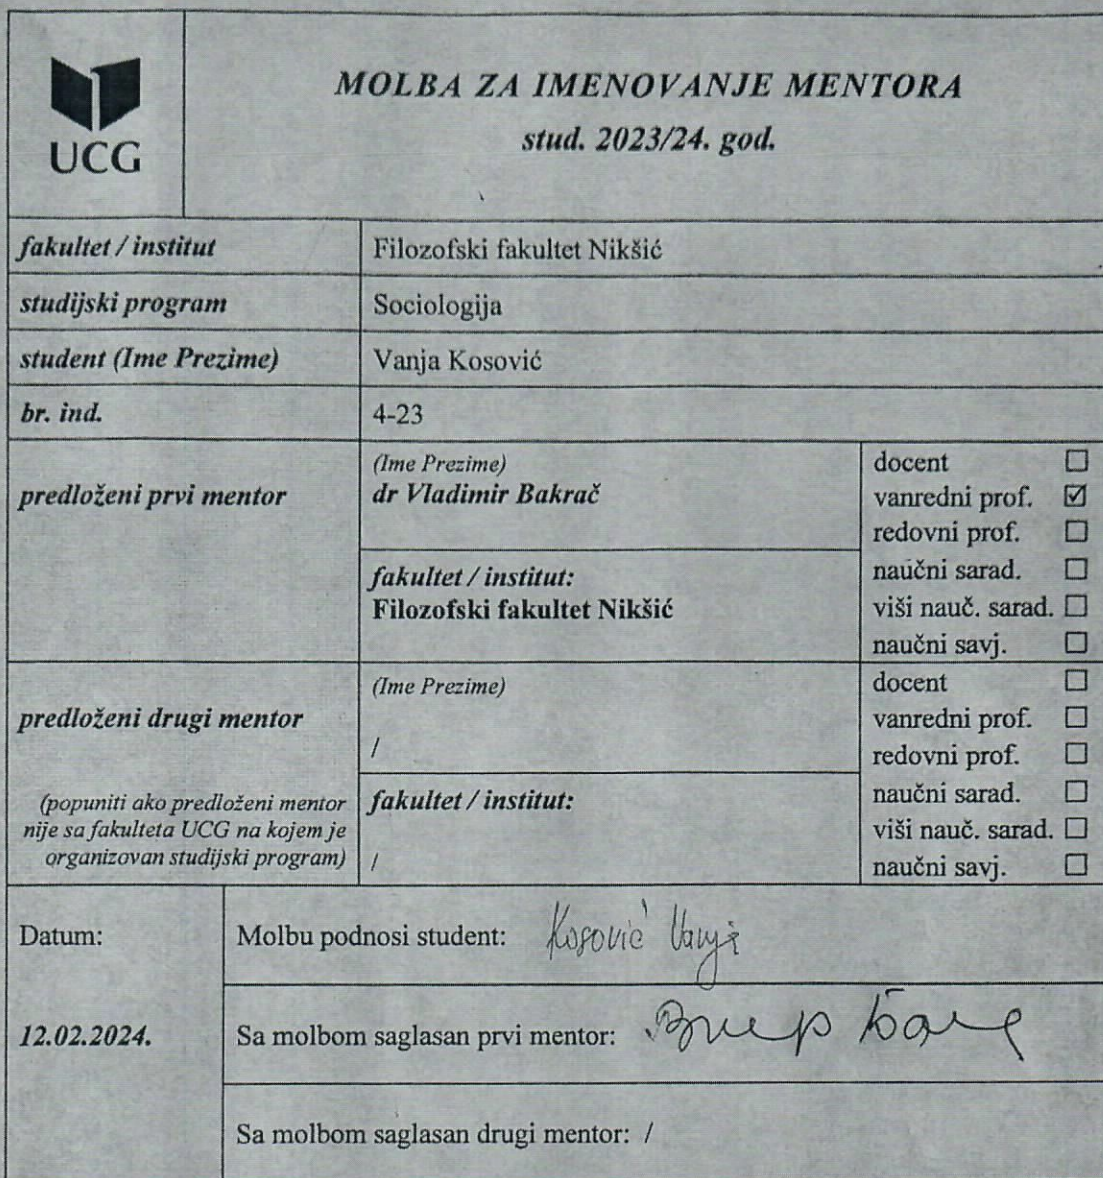 UCG
MOLBA ZA IMENOVANJE MENTORA
stud. 2023/24. god.
fakultet / institut
Filozofski fakultet Nikšić
studijski program
Sociologija
student (Ime Prezime)
Vanja Kosović
br. ind.
4-23
predloženi prvi mentor
(Ime Prezime)
dr Vladimir Bakrač
fakultet / institut:
Filozofski fakultet Nikšić
docent ☐
vanredni prof. ☑
redovni prof. ☐
naučni sarad. ☐
viši nauč. sarad. ☐
naučni savj. ☐
predloženi drugi mentor
(popuniti ako predloženi mentor
nije sa fakulteta UCG na kojem je
organizovan studijski program)
(Ime Prezime)
/
fakultet / institut:
/
docent ☐
vanredni prof. ☐
redovni prof. ☐
naučni sarad. ☐
viši nauč. sarad. ☐
naučni savj. ☐
Datum:
12.02.2024.
Molbu podnosi student: Kosović Vanja
Sa molbom saglasan prvi mentor:
Sa molbom saglasan drugi mentor: /